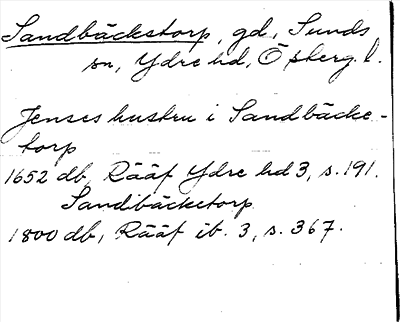 Sandbäckstorp, gd, Sunds
sn, Ydre hd, Östergl.
Jenses hustru i Sandbäcks-
torp
1652 db, Rääf Ydre hd 3, s. 191.
Sandbäcketorp
1800 db, Rääf ib. 3, s. 367.